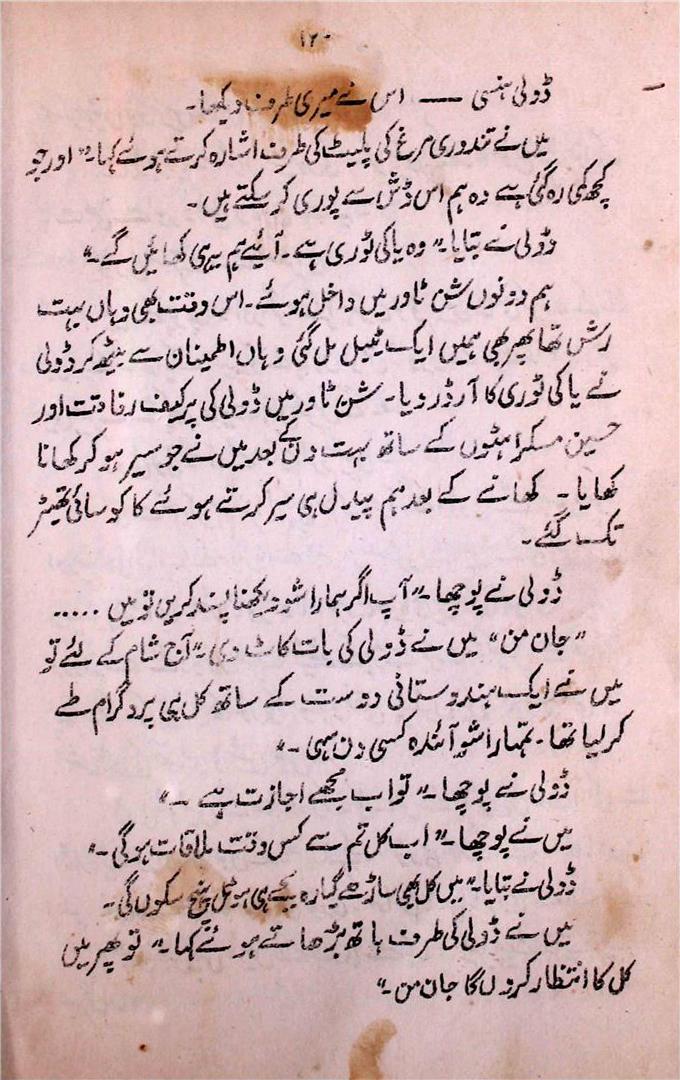 ۱۲۰
ڈولی ہنسی — اس نے میری طرف دیکھا۔
میں نے تندوری مرغ کی پلیٹ کی طرف اشارہ کرتے ہوئے کہا۔" اور جو
کچھ کمی رہ گئی ہے وہ ہم اس ڈش سے پوری کر سکتے ہیں۔
ڈولی نے بتایا۔" وہ یاکی ٹوری ہے۔ آیئے ہم یہی کھائیں گے۔"
ہم دونوں شن ٹاور میں داخل ہوئے۔ اس وقت بھی وہاں بہت
رش تھا پھر بھی ہمیں ایک ٹیبل مل گئی وہاں اطمینان سے بیٹھ کر ڈولی
نے یاکی ٹوری کا آرڈر دیا۔ شن ٹاور میں ڈولی کی پرکیف رفاقت اور
حسین مسکراہٹوں کے ساتھ بہت دن کے بعد میں نے جو سیر ہو کر کھانا
کھایا۔ کھانے کے بعد ہم پیدل ہی سیر کرتے ہوئے کا کوسائی تھیٹر
تک گئے۔
ڈولی نے پوچھا۔" آپ اگر ہمارا شو دیکھنا پسند کریں تو میں .....
"جان من" میں نے ڈولی کی بات کاٹ دی۔" آج شام کے لئے تو
میں نے ایک ہندوستانی دوست کے ساتھ کل ہی پروگرام طے
کر لیا تھا۔ تمہارا شو آئندہ کسی دن سہی۔"
ڈولی نے پوچھا۔" تو اب مجھے اجازت ہے۔"
میں نے پوچھا۔" اب کل تم سے کس وقت ملاقات ہو گی۔"
ڈولی نے بتایا۔" میں کل بھی ساڑھے گیارہ بجے ہی ہوٹل پہنچ سکوں گی۔
میں نے ڈولی کی طرف ہاتھ بڑھاتے ہوئے کہا۔" تو پھر میں
کل کا انتظار کروں گا جان من۔"